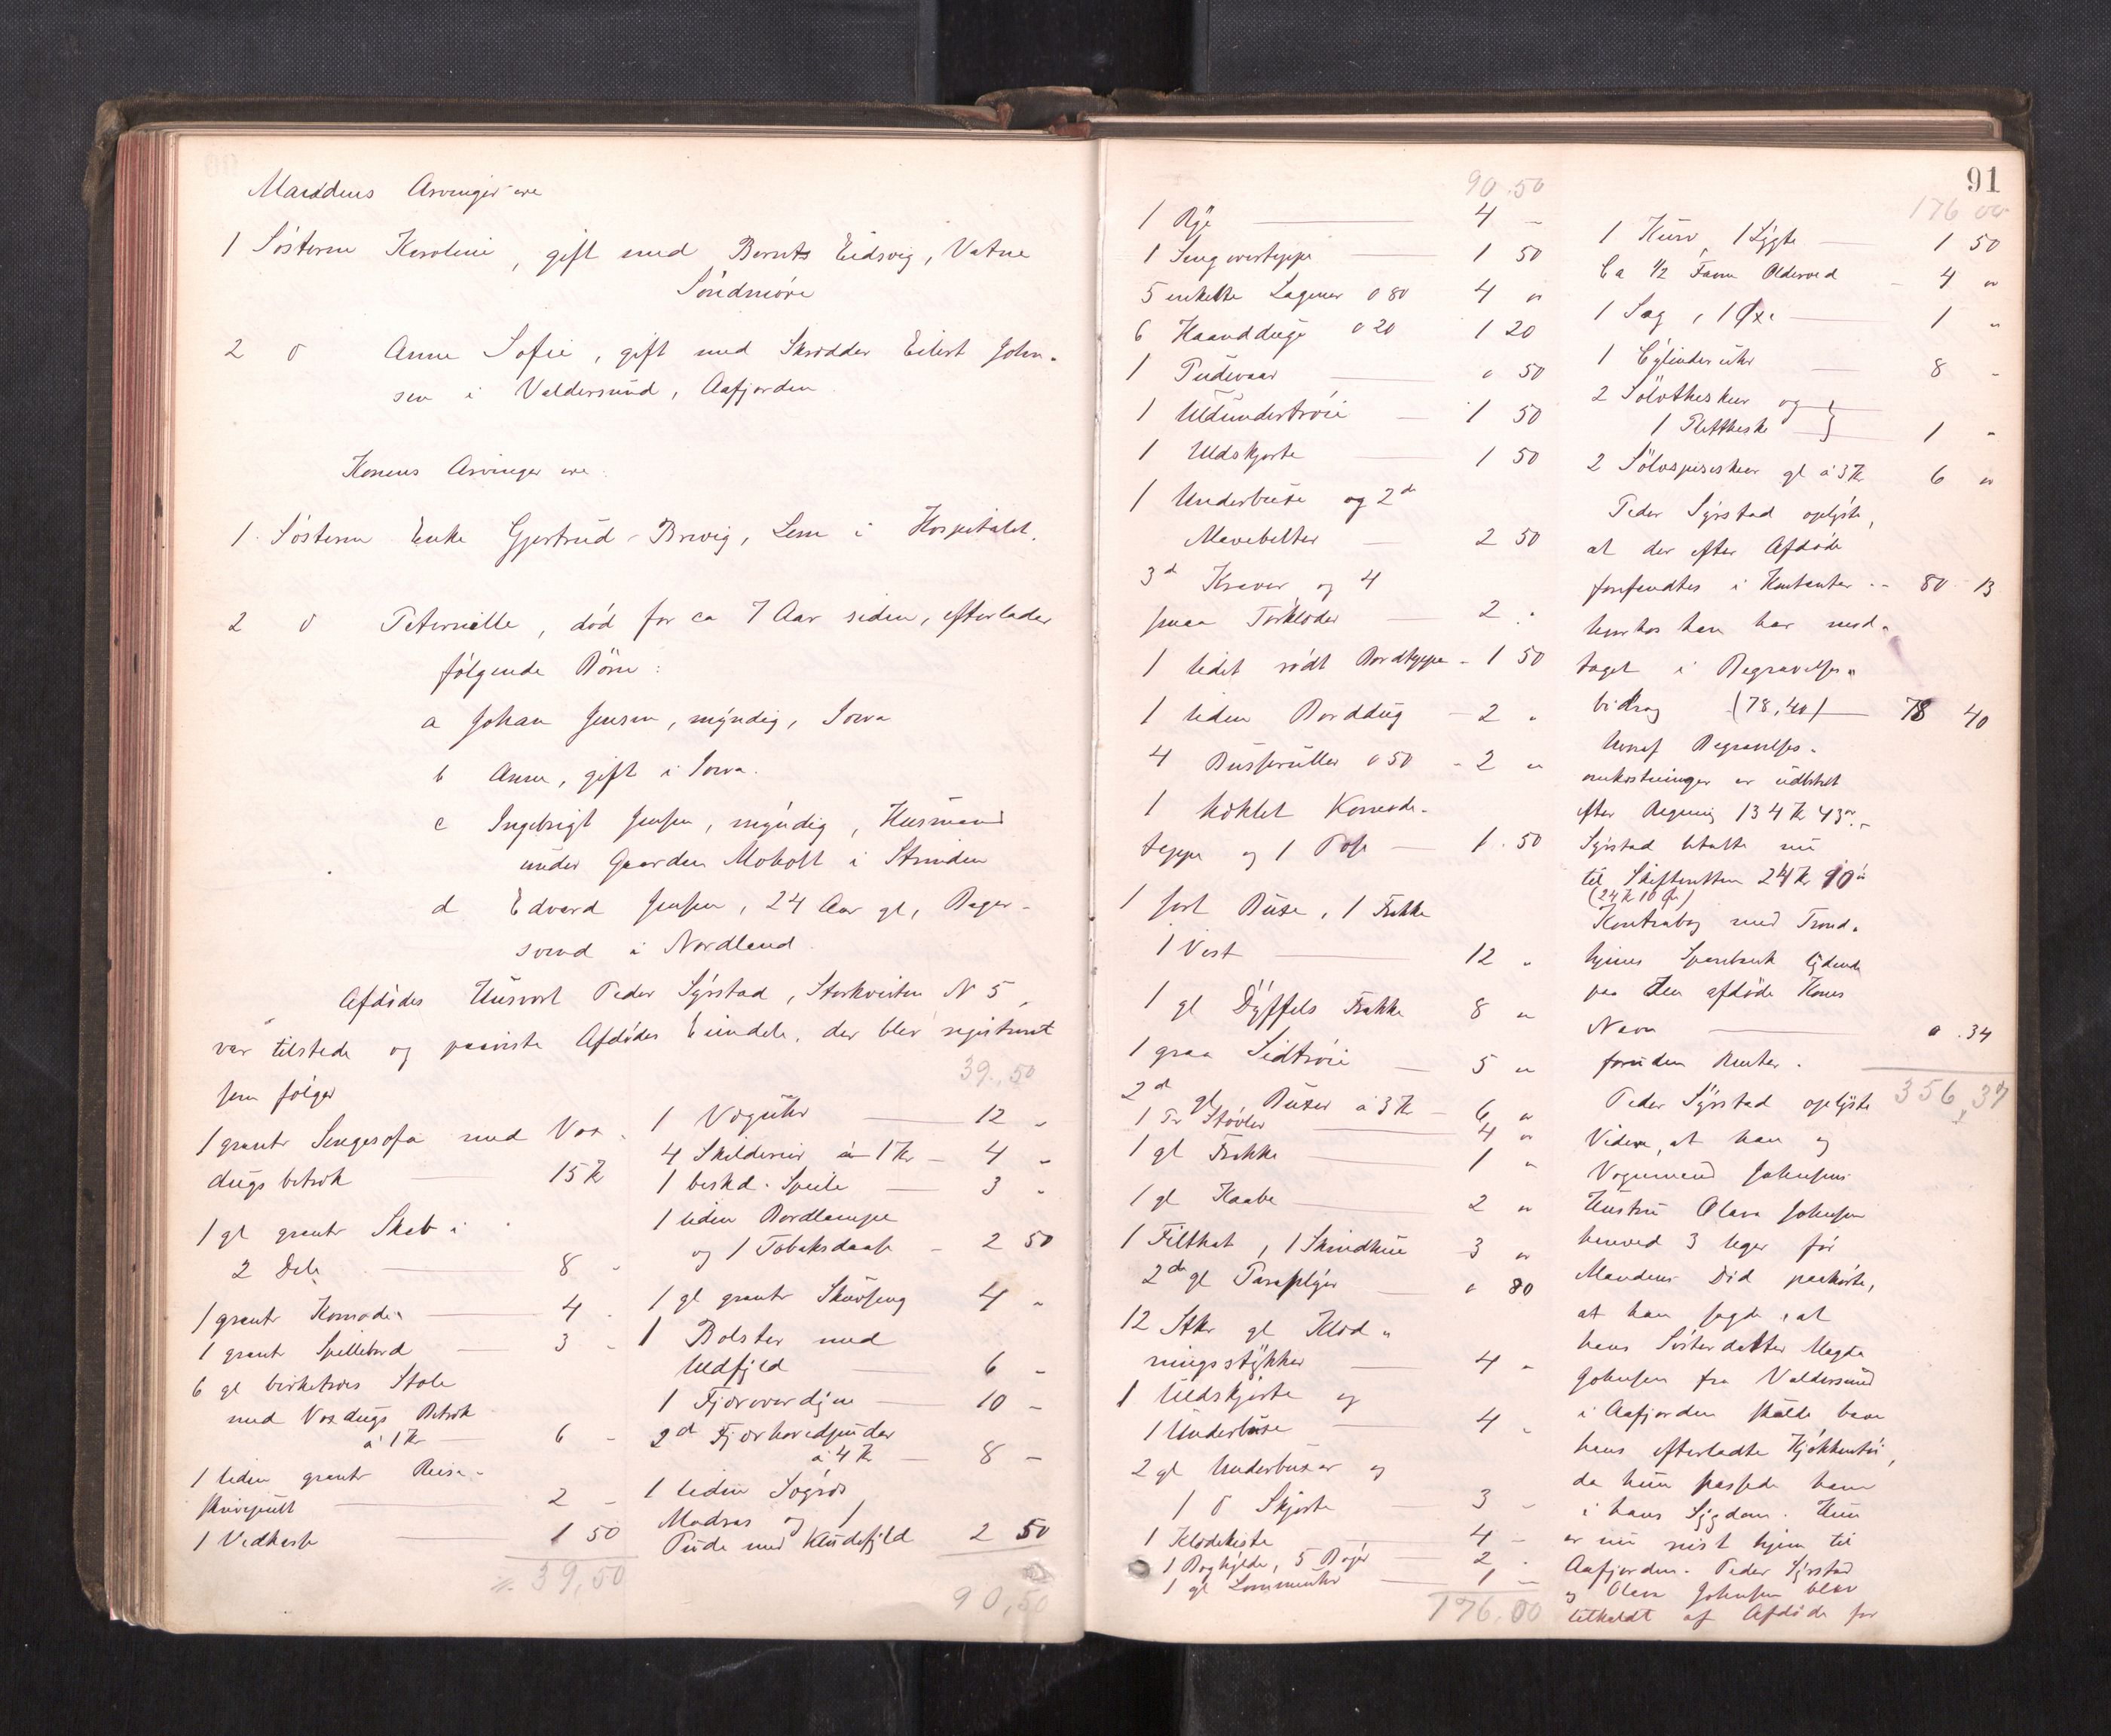 Mandens Arvinger ere
1 Søsteren Karoline, gift med Bernts Eidsvig, Vatne
Søndmøre
2 d Anne Sofie, gift med Skrædder Eilert John-
sen i Valdersund, Aafjorden
Konens Arvinger ere:
1. Søsteren Enke Gjertrud Brevig, Lem i Hospitalet.
2 d Peternille, død for ca 7 Aar siden, efterlader
følgende Børn:
a Johan Jensen, myndig, Iowa
b Anne, gift i Iowa.
c Ingebrigt Jensen, myndig, Husmand
under Gaarden Moholt i Strinden
d Edvard Jensen, 24 Aar gl, Bager-
svend i Nordland.
Afdødes Husvert Peder Syrstad, Storkvisten N 5,
var tilstede og paaviste Afdødes Eiendele, der blev registreret
som følger
1 grønt Sengesofa med Vox-
dugs betræk 15 Kr
1 gl grønt Skab i
2 Dele 8 -
1 grønt Komode 4 -
1 grønt Spillebord 3 -
6 gl birketræs Stole
med Voxdugs Betræk
à 1 Kr 6 -
1 liden grønt Reise-
skrivepult 2 -
1 Vedkasse 1 50
39,50
39,50
1 Væguhr 12 -
4 Skilderier à 1 Kr 4 -
1 beskd. Speile 3 -
1 liden Bordlampe
og 1 Tobaksdaase 2 50
1 gl grønt Skuvseng 4 -
1 Bolster med
Uldfyld 6 -
1 Fjæroverdyne 10 -
2d Fjærhovedpuder
à 4 Kr 8 -
1 liden Søgræs
Madras og 1
Pude med Kludefyld 2 50
90,50
91
90.50
1 Rye 4 -
1 Sengovertæppe 1 50
5 enkelte Lagener 0 80 4 "
6 Haandduge 0 20 1 20
1 Pudevaar 0 50
1 Uldundertrøie 1 50
1 Uldskjorte 1 50
1 Underbuxe og 2de
Mavebelter 2 50
3d Kraver og 4
smaa Tørklæder 2 -
1 lidet rødt Bordtæppe 1 50
1 liden Borddug 2 "
4 Busseruller 0 50 2 "
1 hæklet Komode-
tæppe og 1 Pose 1.50
1 sort Buxe, 1 Frakke
1 Vest 12 "
1 gl Dyffels Frakke 8 "
1 graa Sidtrøie 5 "
2d gl Buxer à 3 Kr 6 "
1 Pr Støvler 4 "
1 gl Frakke 1 "
1 gl Kaabe 2 "
1 Filthat, 1 Skindhue 3 "
2de gl Paraplyer 0 80
12 Stkr gl Klæd-
ningsstykker 4 -
1 Uldskjorte og
1 Underbuxe 4 -
2 gl Underbuxer og
1 d Skjorte 3 -
1 Klædekiste 4 -
1 Boghylde, 5 Bøger 2 -
1 gl Lommeuhr 1 -
176.00
176 00
1 Kurv, 1 Lygte 1 50
Ca 1/2 Favn Olderved 4 "
1 Sag, 1 Øxe 1 "
1 Cylinderuhr 8 -
2 Sølvtheskeer og }
1 Pletttheske } 1 -
2 Sølvspiseskeer gl à 3 Kr 6 "
Peder Syrstad oplyste,
at der efter Afdøde
forefandtes i Kontanter 80 13
hvorhos han har mod-
taget i Begravelses-
bidrag (78,40) 78 40
hvoraf Begravelses-
omkostninger er udbetalt
efter Regning 134 Kr 43 ør.
Syrstad betalte nu
til Skifteretten 24 Kr 10 ø
(24 Kr 10 Øre)
Kontrabog med Trond-
hjems Sparebank lydende
paa den afdøde Kones
Navn 0.34
foruden Renter.
356,37
Peder Syrstad oplyste
Videre, at han og
Vognmand Johnsens
Hustru Olava Johnsen
henved 3 Uger før
Mandens Død paahørte,
at han sagde, at
hans Søsterdatter Magda
Johnsen fra Valdersund
i Aafjorden skulde have
hans efterladte Kjøkkentøi,
da hun passede ham
i hans Sygdom. Hun
er nu reist hjem til
Aafjorden. Peder Syrstad
og Olava Johnsen blev
tilkaldt af Afdøde for